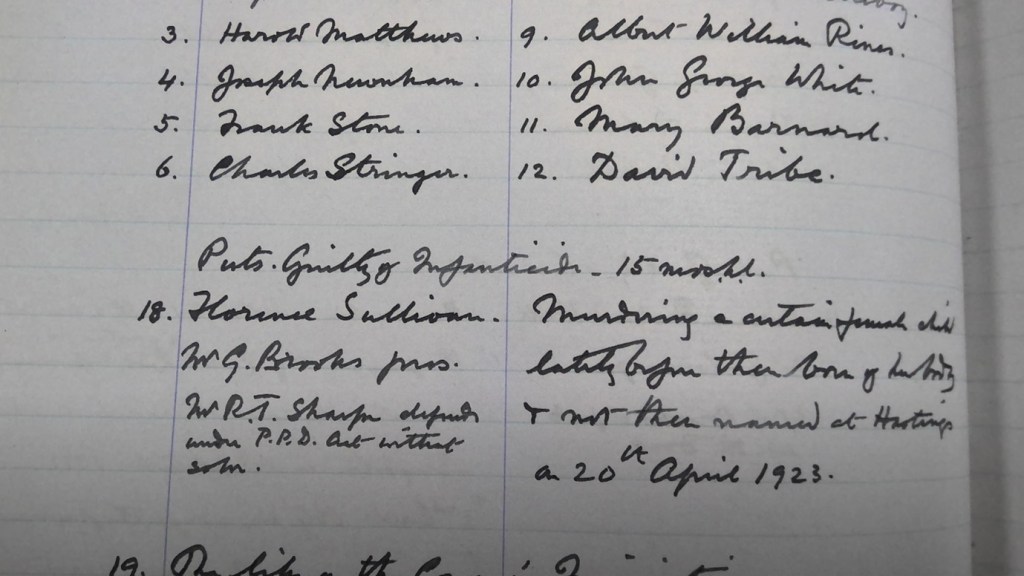 3. Harold Matthews. 9. Albert William Riner.
4. Joseph Newnham. 10. John George White.
5. Frank Stone. 11. Mary Barnard.
6. Charles Stringer. 12. David Tribe.
Puts. Guilty of Infanticide - 15 mos. h.l.
18. Florence Sullivan. Murdering a certain female child
Mr G. Brooks pros. lately before then born of her body
Mr R.T. Sharpe defends & not then named at Hastings
under P.P.D. Act without
solr. on 20th April 1923.
19.